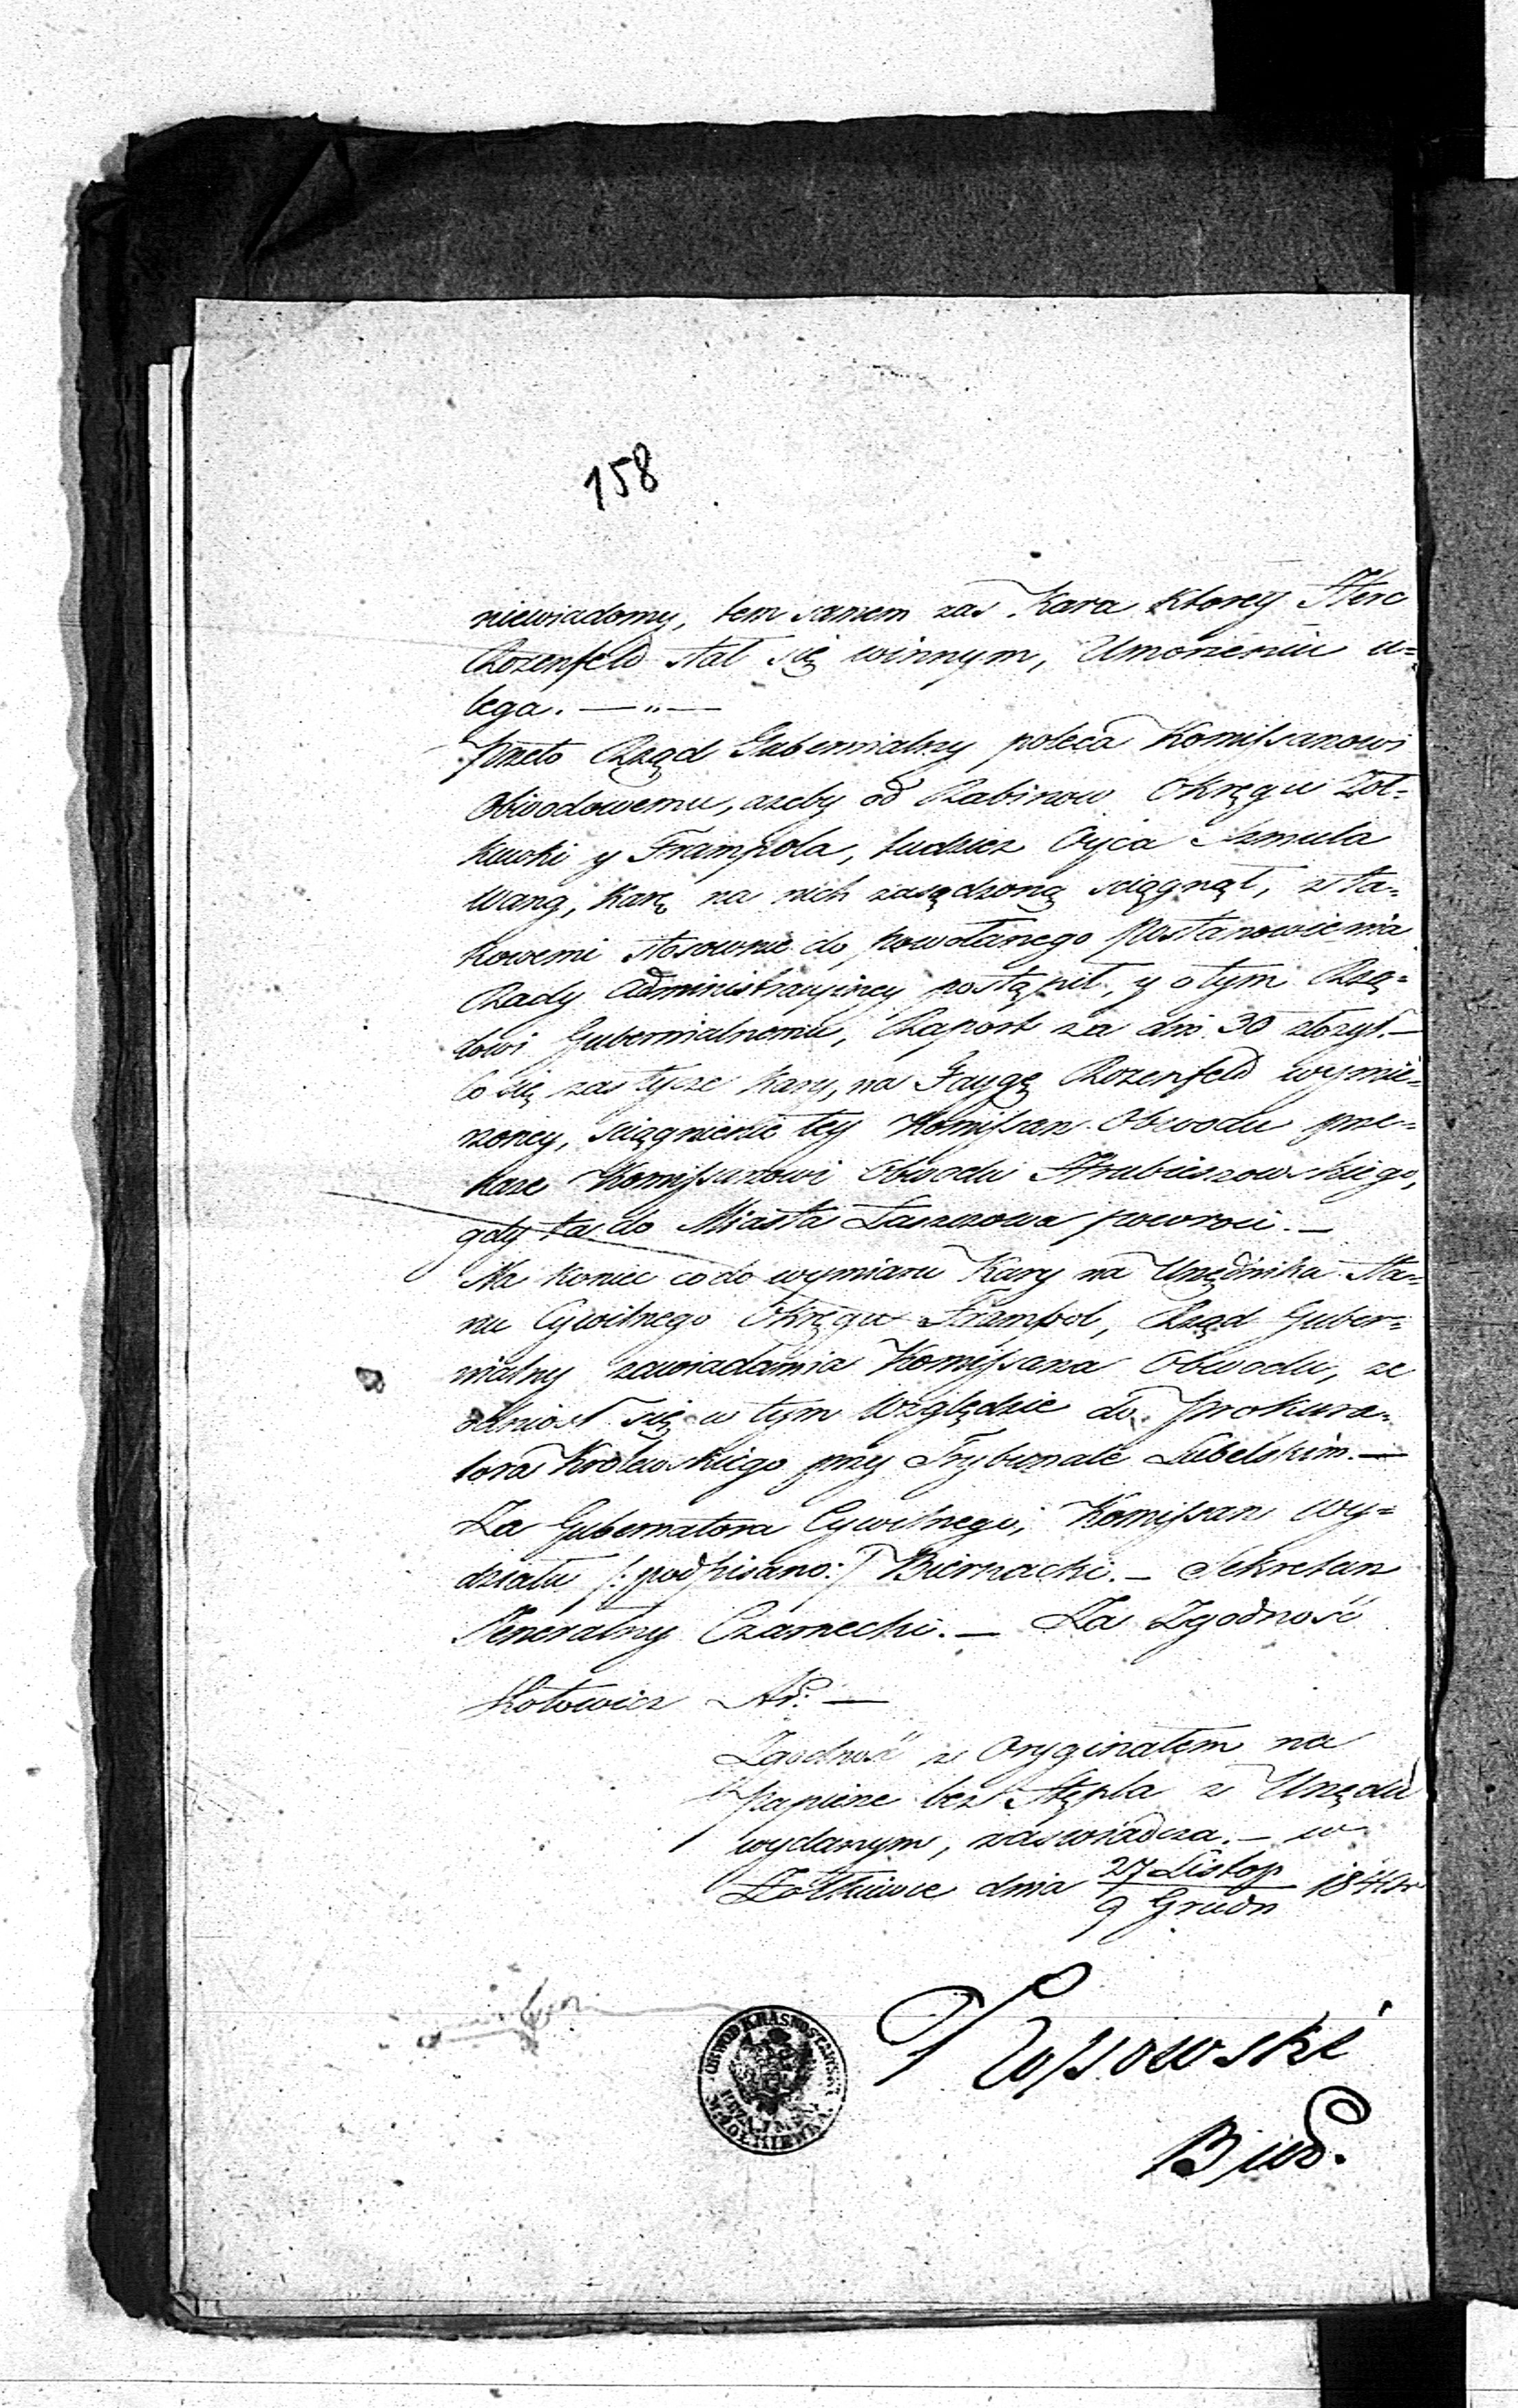 158
niewiadomy, tem samem zas Kara ktorey Herc
Rozenfeld stał się winnym, Umorzeniu u=
lega. — " —
Przeto Rząd Gubernialny poleca Komissarzowi
Obwodowemu, azeby od Rabinow Okręgu Zoł=
kiewki y Frampola, tudziez Oyca Szmula
Wang, karę na nich zasądzoną sciągnął, z ta=
kowemi stosownie do powołanego Postanowienia
Rady Administracyiney postąpił, y o tym Rzą=
dowi Gubernialnemu, Raport za dni 30 złozył. —
Co się zas tycze kary, na Faygę Rozenfeld wymie=
rzoney, sciągnienie tey Komissarz Obwodu prze=
kaze Komissarzowi Obwodu Hrubieszowskiego,
gdy ta do Miasta Łaszczowa powroci. —
Na koniec co do wymiaru Kary na Urzędnika Sta=
nu Cywilnego Okręgu Frampol, Rząd Guber=
nialny zawiadamia Komissarza Obwodu, ze
odniosł się w tym Względzie do Prokura=
tora Krolewskiego przy Trybunale Lubelskim. —
Za Gubernatora Cywilnego, Komissarz Wy=
działu /: podpisano :/ Biernacki. — Sekretarz
Jeneralny Czarnecki. — Za Zgodność
Kotowicz —
Zgodność z Oryginałem na
Papierze bez Stępla z Urzędu
wydanym, zaswiadcza. — w
Zołkiewce dnia 27 Listop / 9 Grudn
Bur.
OBWÓD KRASNOSTAWSKI
M. ŻÓŁKIEWKA